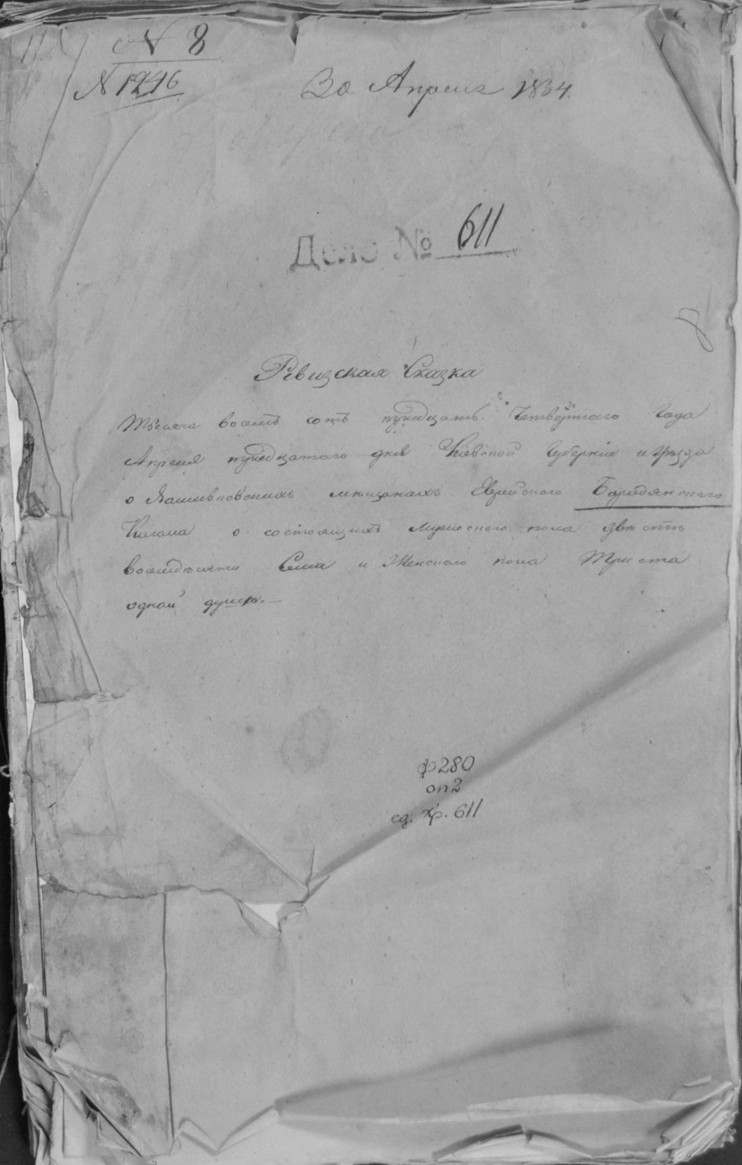 N 8
N 1246
30 Апреля 1834.
Дело № 611
8
Ревизская Сказка
Тысяча восемь сотъ тридцать Четвертого Года
Апреля тридцатого дня Киевской Губернiи и уезда
о мещанахъ Еврейского Бородянского
Кагала о состоящихъ мужеского пола двести
восемьдесятъ Семъ и Женского пола Триста
одной душъ.—
ф 280
оп 2
ед. хр. 611